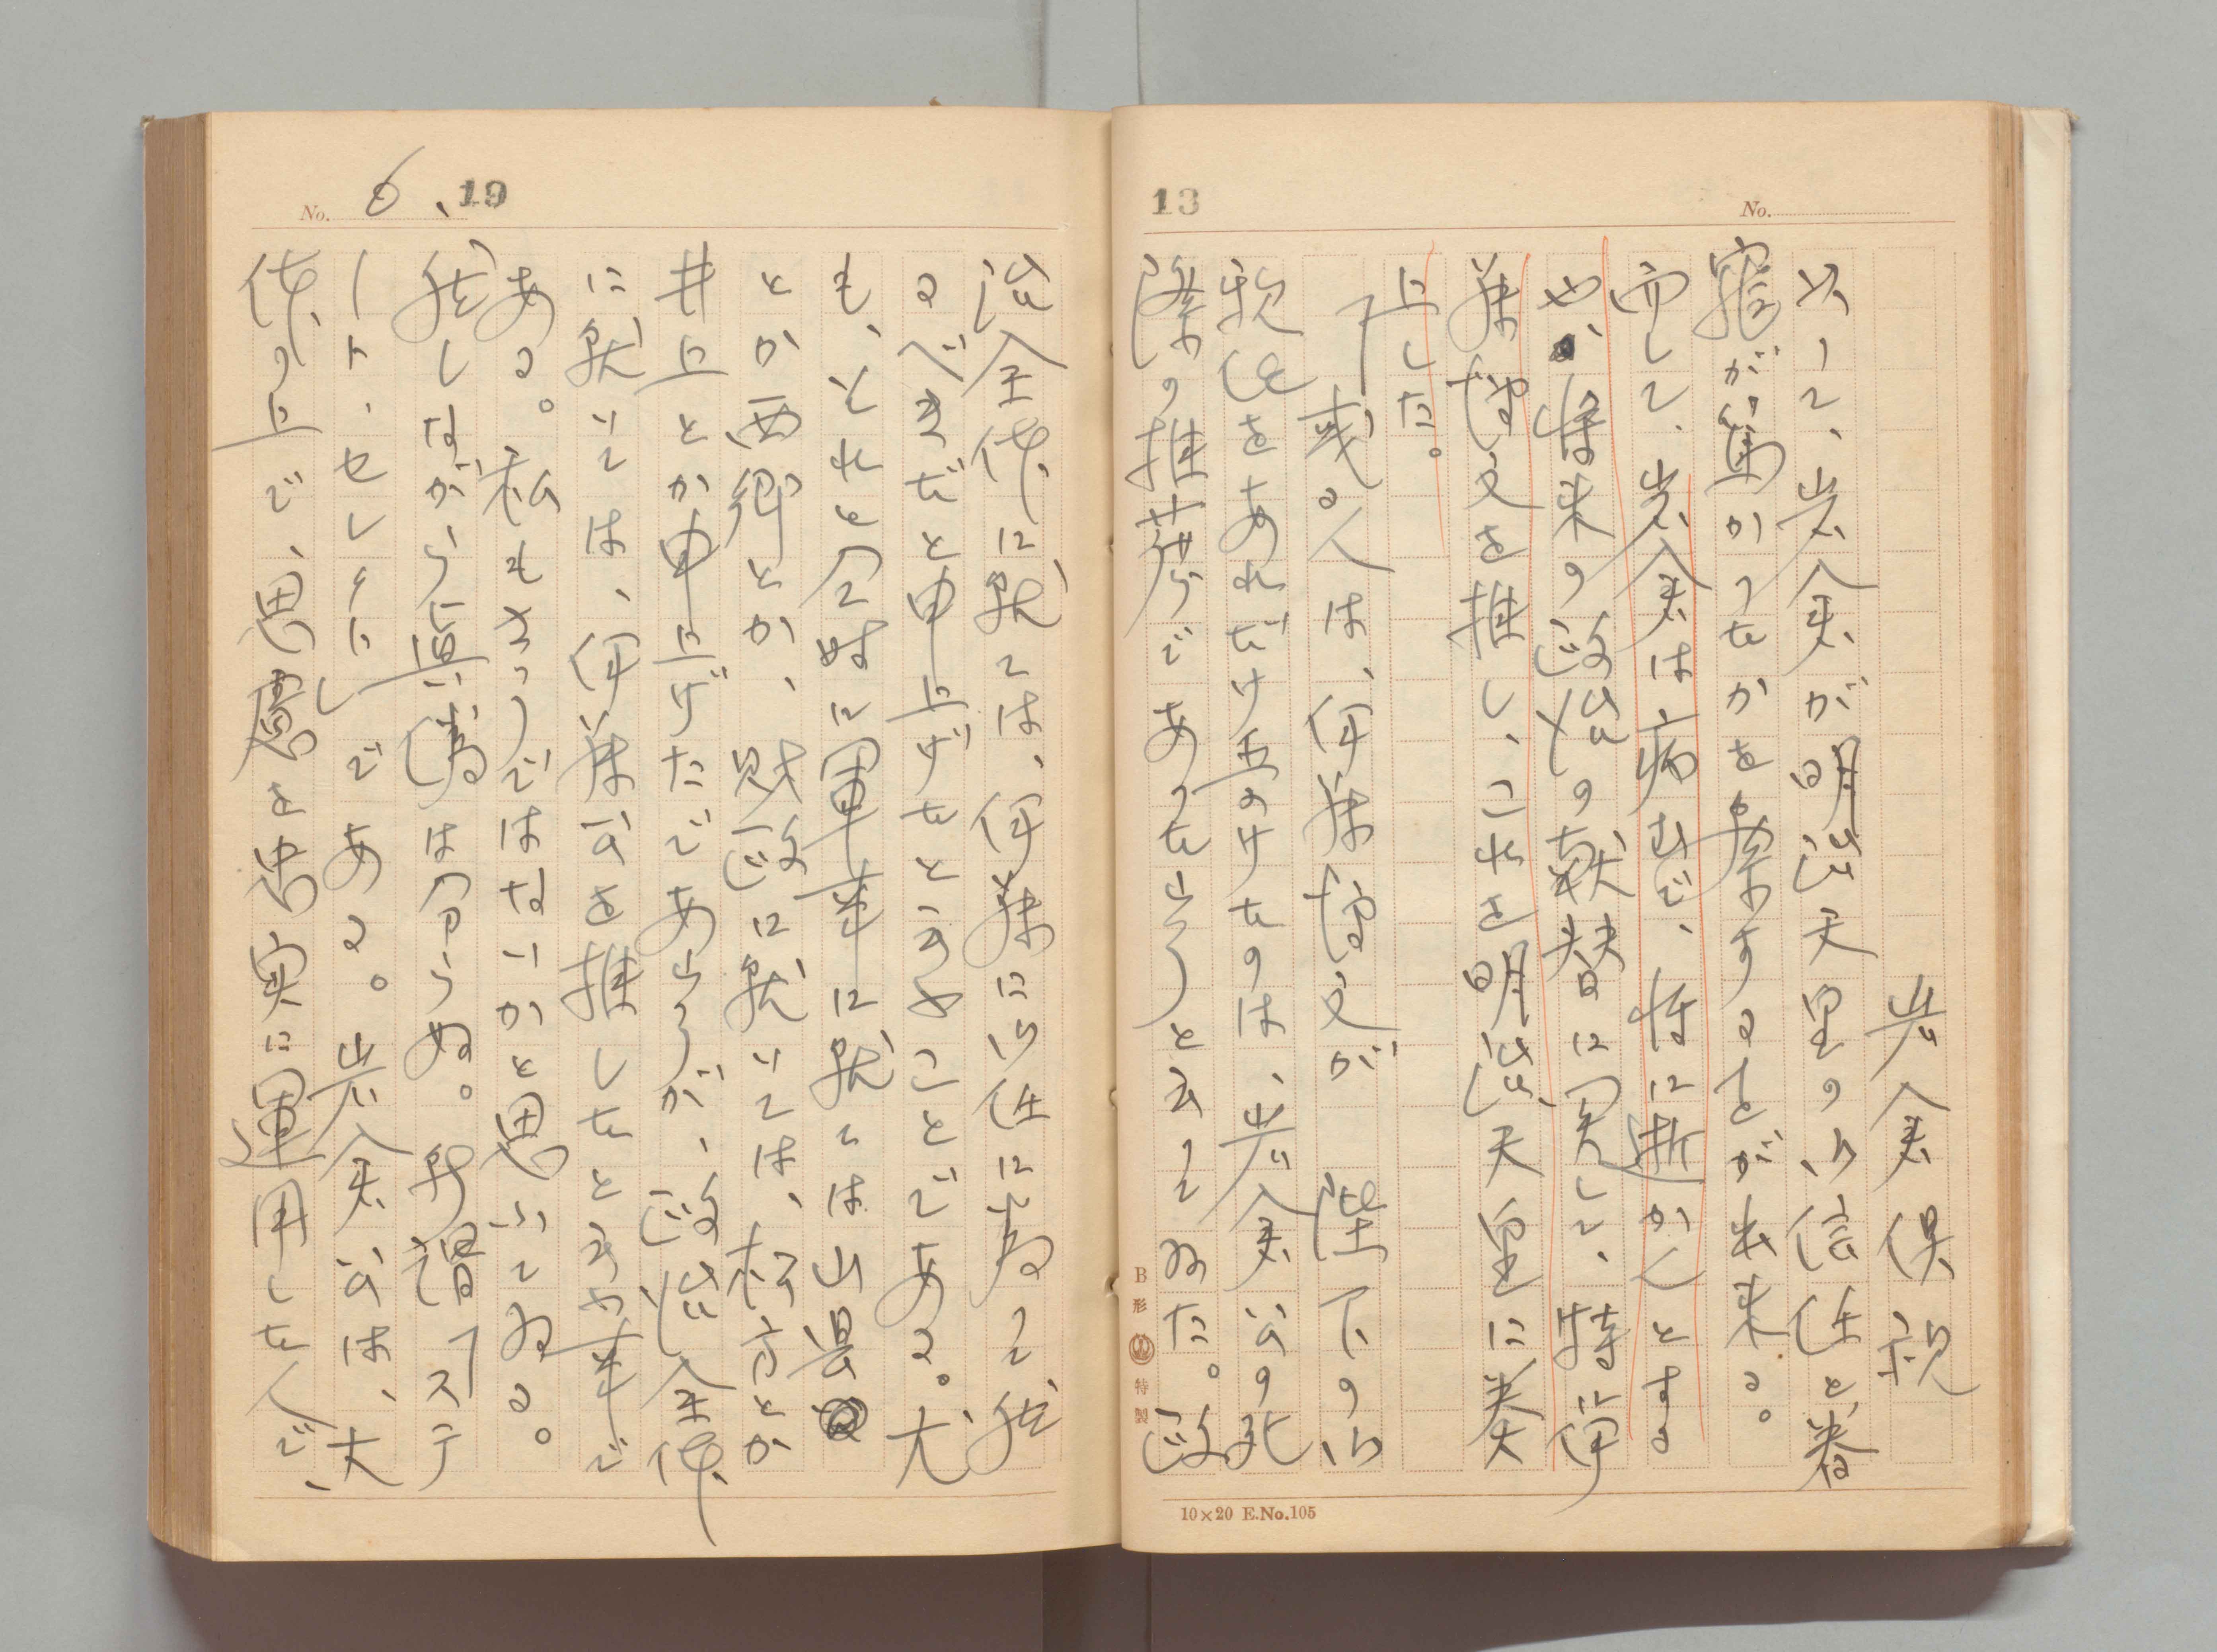 13
No.
岩倉俱視
以って、岩倉が明治天皇の御信任と眷
寵が篤かつたかを察することが出来る。
而して、岩倉は病むで、将に逝かんとする
や、将来の政治の献替に関して、特に伊
藤博文を推し、これを明治天皇に奏
上した。
「或る人は、伊藤博文が 陛下の御
をあれだけけたのは、岩倉公の死
際の推薦であつたらうと云つてゐた。政
B形 特製
10×20 E.No.105
No. 6、19
治全体に就ては、伊藤に御任に為つて、然
るべきだと申上げたといふことである。尤
も、それと同時に軍事に就ては山県
とか西郷とか、財政に就いては、松方とか
井上とか申上げたであらうが、政治全体
に就いては、伊藤公を推したといふ事で
ある。私もさうではないかと思ふてゐる。
然しながら真偽は分らぬ。所謂「ステ
ート、」である。岩倉公は、大
体の上で、思慮を忠実に運用した人で、